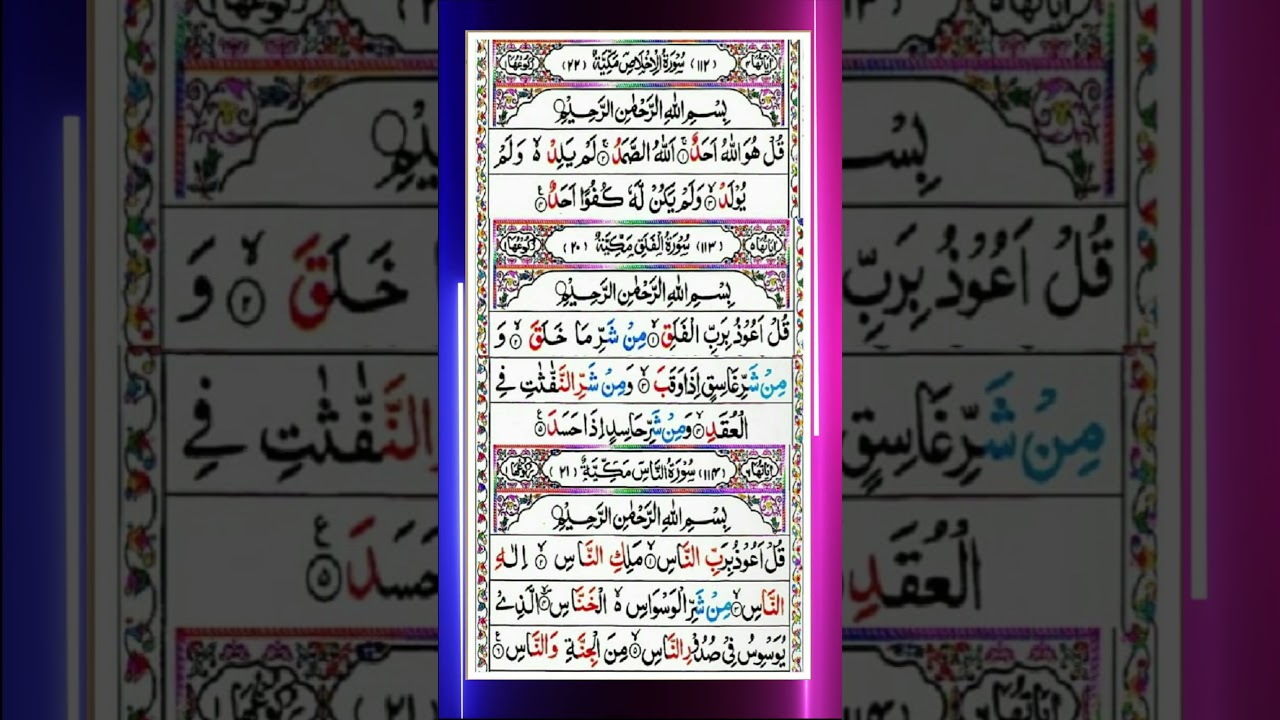 اٰيَاتُهَا ٤ (١١٢) سُوْرَةُ الْاِخْلَاصِ مَكِّيَّةٌ (٢٢) رُكُوْعُهَا ١
بِسْمِ اللّٰهِ الرَّحْمٰنِ الرَّحِيْمِ
قُلْ هُوَ اللّٰهُ اَحَدٌ ۚ۝١ اَللّٰهُ الصَّمَدُ ۚ۝٢ لَمْ يَلِدْ ۙ وَلَمْ
يُوْلَدْ ۙ۝٣ وَلَمْ يَكُنْ لَّهٗ كُفُوًا اَحَدٌ ۝٤
اٰيَاتُهَا ٥ (١١٣) سُوْرَةُ الْفَلَقِ مَكِّيَّةٌ (٢٠) رُكُوْعُهَا ١
بِسْمِ اللّٰهِ الرَّحْمٰنِ الرَّحِيْمِ
قُلْ اَعُوْذُ بِرَبِّ الْفَلَقِ ۙ۝١ مِنْ شَرِّ مَا خَلَقَ ۙ۝٢ وَ
مِنْ شَرِّ غَاسِقٍ اِذَا وَقَبَ ۙ۝٣ وَمِنْ شَرِّ النَّفّٰثٰتِ فِي
الْعُقَدِ ۙ۝٤ وَمِنْ شَرِّ حَاسِدٍ اِذَا حَسَدَ ۝٥
اٰيَاتُهَا ٦ (١١٤) سُوْرَةُ النَّاسِ مَكِّيَّةٌ (٢١) رُكُوْعُهَا ١
بِسْمِ اللّٰهِ الرَّحْمٰنِ الرَّحِيْمِ
قُلْ اَعُوْذُ بِرَبِّ النَّاسِ ۙ۝١ مَلِكِ النَّاسِ ۙ۝٢ اِلٰهِ
النَّاسِ ۙ۝٣ مِنْ شَرِّ الْوَسْوَاسِ ۙ الْخَنَّاسِ ۝٤ الَّذِيْ
يُوَسْوِسُ فِيْ صُدُوْرِ النَّاسِ ۙ۝٥ مِنَ الْجِنَّةِ وَالنَّاسِ ۝٦